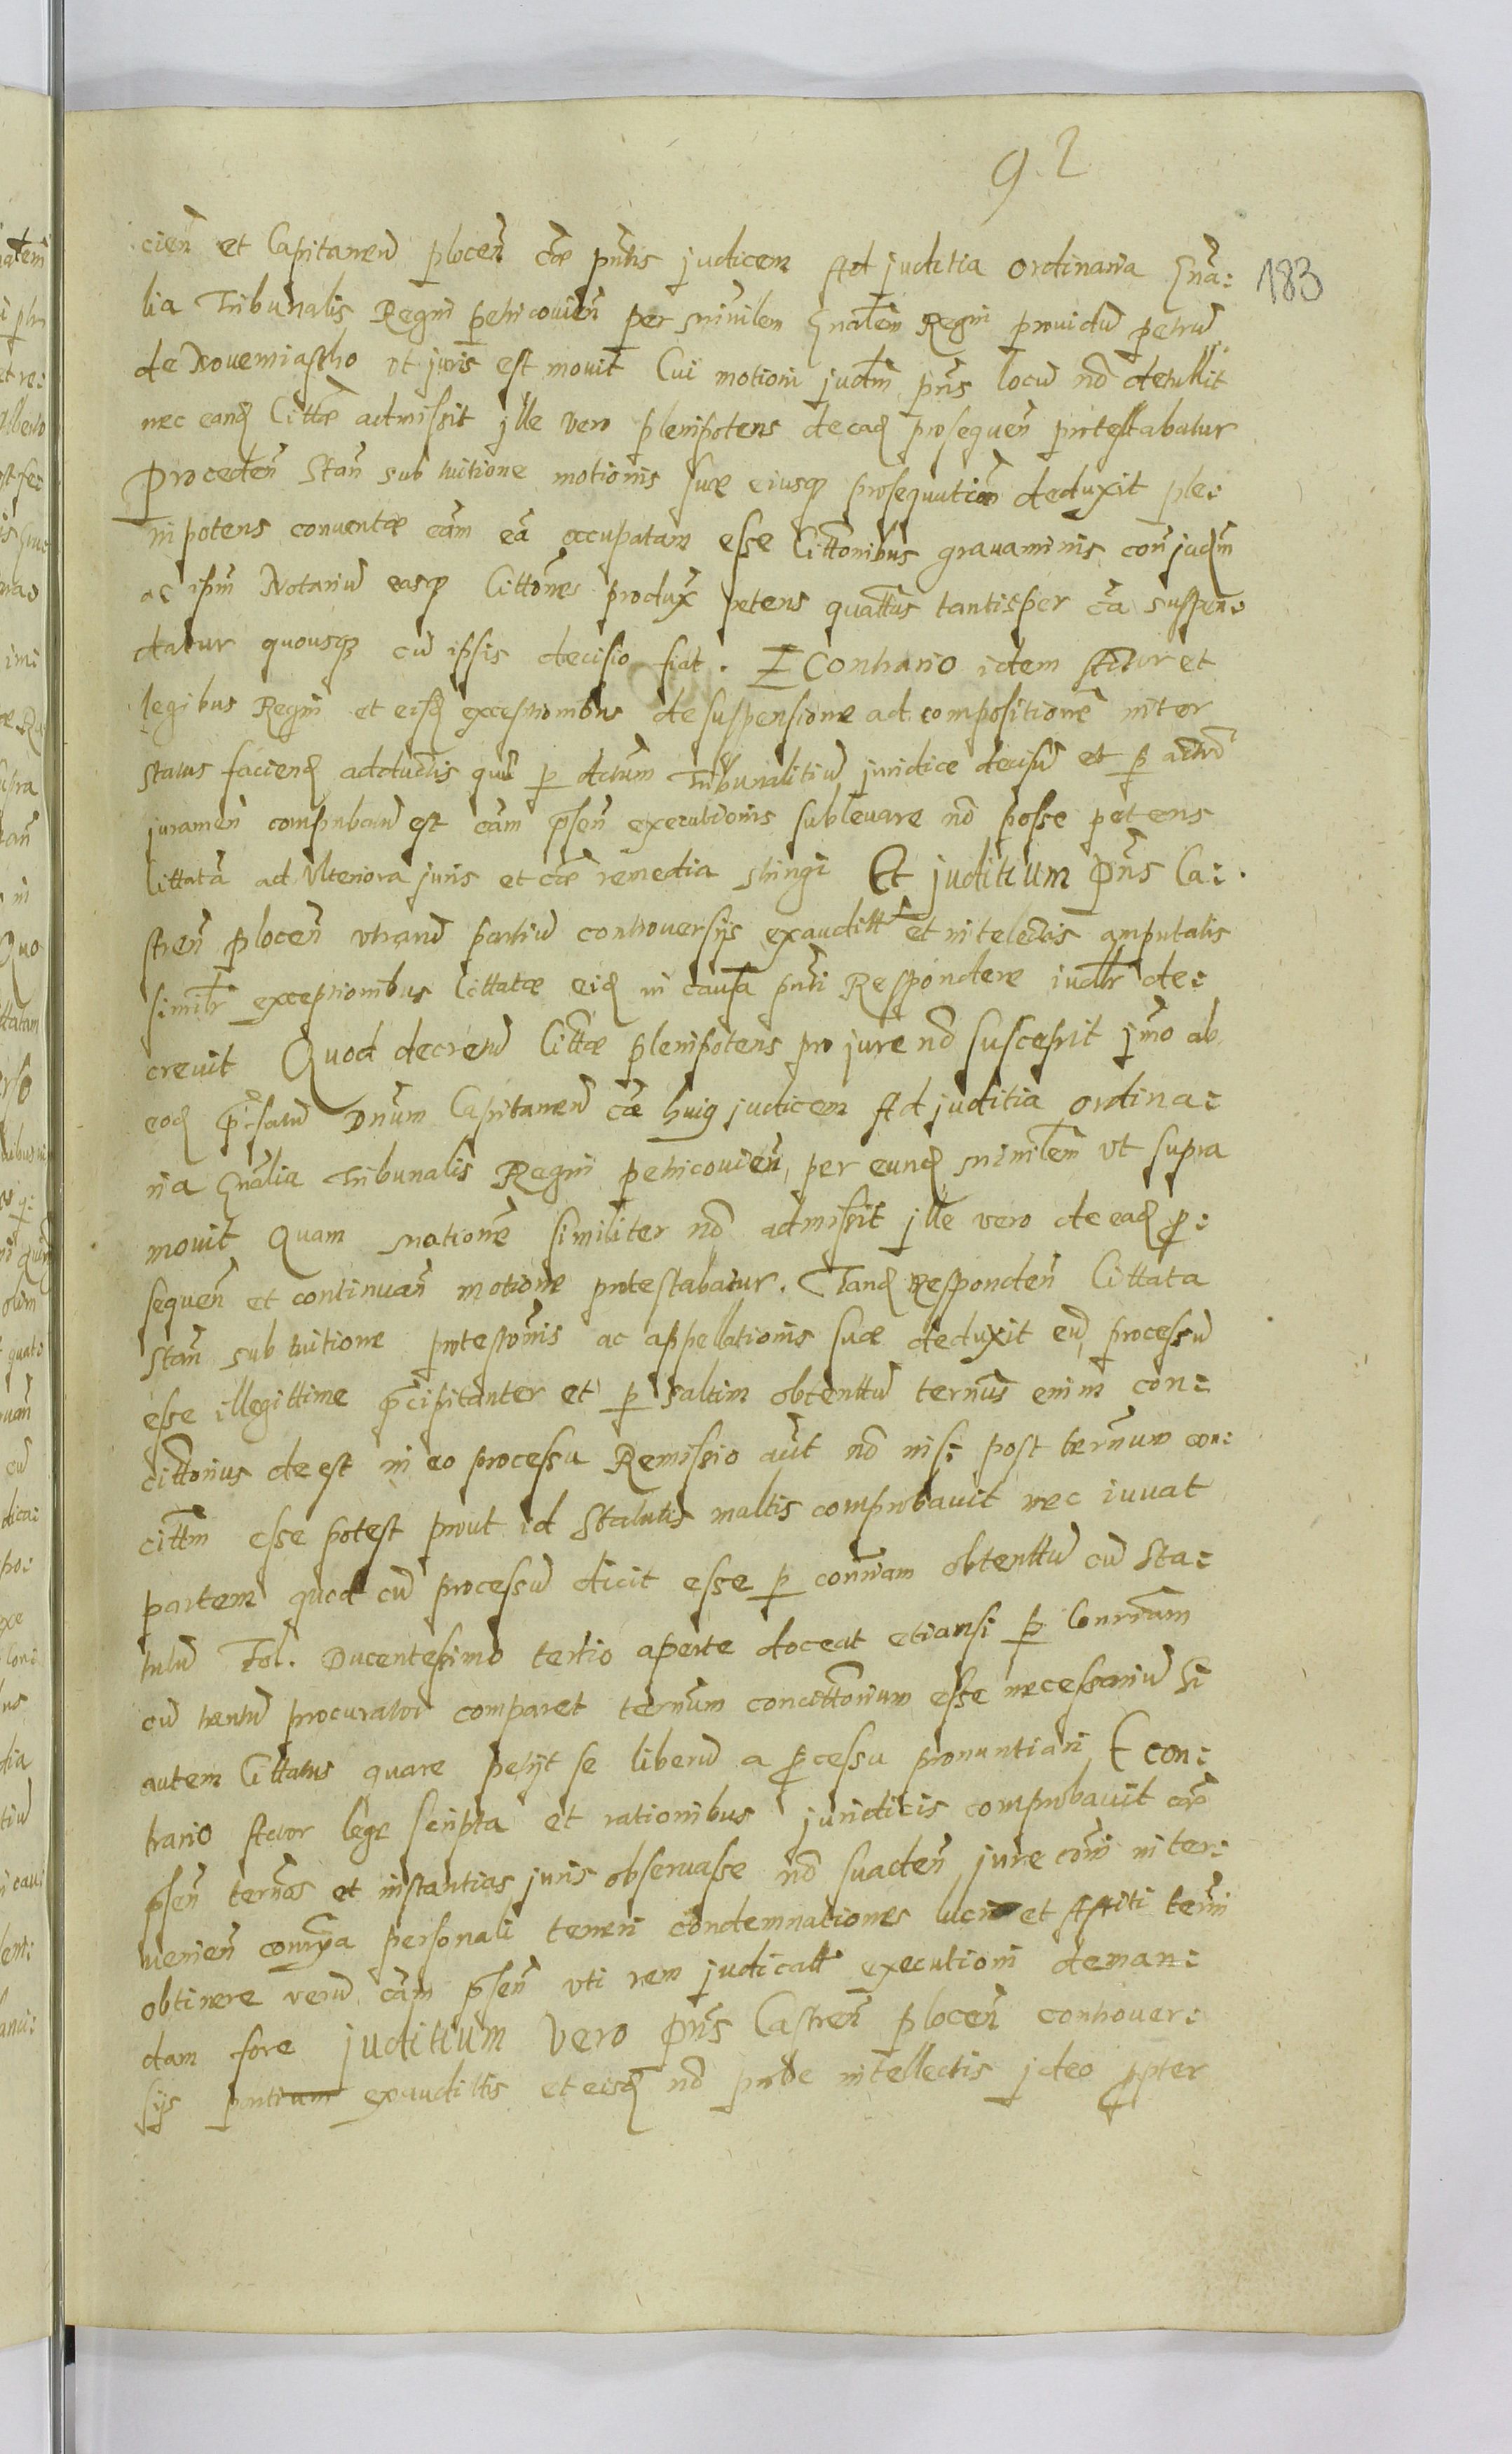 92
183
cień et Capitaneū plocen̄ cāe pn̄tis judicem Ad juditia ordinaria Gn̄a:
lia Tribunalis Regni petricovien̄ per Minīlem Gn̄alem Regni providū petrū
de Novemiastho ut juris est movit Cui motioni judm̄ pn̄s locū nō detullit
nec eand Cittāe admissit jlle vero plenipotens de ead prosequen̄ protestabatur
Proceden̄ Stan̄ sub tuitione motionis suæ eiusq prosequution̄ deduxit ple:
nipotens conventæ cām eā occupatam esse Cittōnibus gravaminis con̄ judm̄
ac ipm̄ Notariū easq Cittōnes produx petens quatt̄us tantisper cā suspen:
datur quousq cū ipsis decisio fiat. E Contrario idem Actor et
legibus Regni et eisd exceptionibus de suspensione ad compositionē inter
status faciend adductis qui p dctum Tribunalitiū juridice decisū et p actrō
juramen̄ comprobatū est cām psen̄ executionis sublevare nō posse petens
Cittatā ad Ulteriora juris et cāe remedia stringi Et juditium Pn̄s Ca:
stren̄ plocen̄ utrarū partiū controversijs exauditt et intelectis amputatis
similr exceptionibus Cittatæ eid in causa pn̄ti Respondere iudlr de:
crevit Quod decretū Cittāe plenipotens pro jure nō suscepit jmo ab
eod Præfatū Dn̄um Capitaneū cāe huig judicem Ad juditia ordina:
ria Gn̄alia Tribunalis Regni petricovien̄ per eund minīlem ut supra
movit Quam motionē similiter nō admissit jlle vero de ead p:
sequen̄ et continuan̄ motione protestabatur. Tand Responden̄ Cittata
Stan̄ sub tuitione protestōnis ac appellationis suæ deduxit eū processū
esse illegittime præcipitanter et p saltim obtenttū tern̄us enim con:
cittōrius deest in eo processu Remissio aūt nō nisi post tern̄um con:
cittm̄ esse potest prout id Statutis multis comprobavit nec iuvat
partem quod eū processū dicit esse p conn̄iam obtenttū cū Sta:
tutū Fol. Ducentesimo tertio aperte doceat etiansi p Conn̄iam
cū tantū procurator comparet tern̄um concittōrium esse necessariū Si
autem Cittatus quare petijt se liberū a pcessu pronuntiari E con:
trario Actor lege scripta et rationibus juridicis comprobavit cām
psen̄ tern̄os et instantias juris observasse nō suaden̄ jure cōmi inter:
venien̄ conn̄ija personali teneri condemnationes lucri et Astiti tern̄i
obtinere verū cām psen̄ uti rem judicatt executioni deman:
dam fore juditium Vero Pn̄s Castren̄ plocen̄ controver:
sijs partium exaudittis et eisd nō probe intellectis jdeo ppter